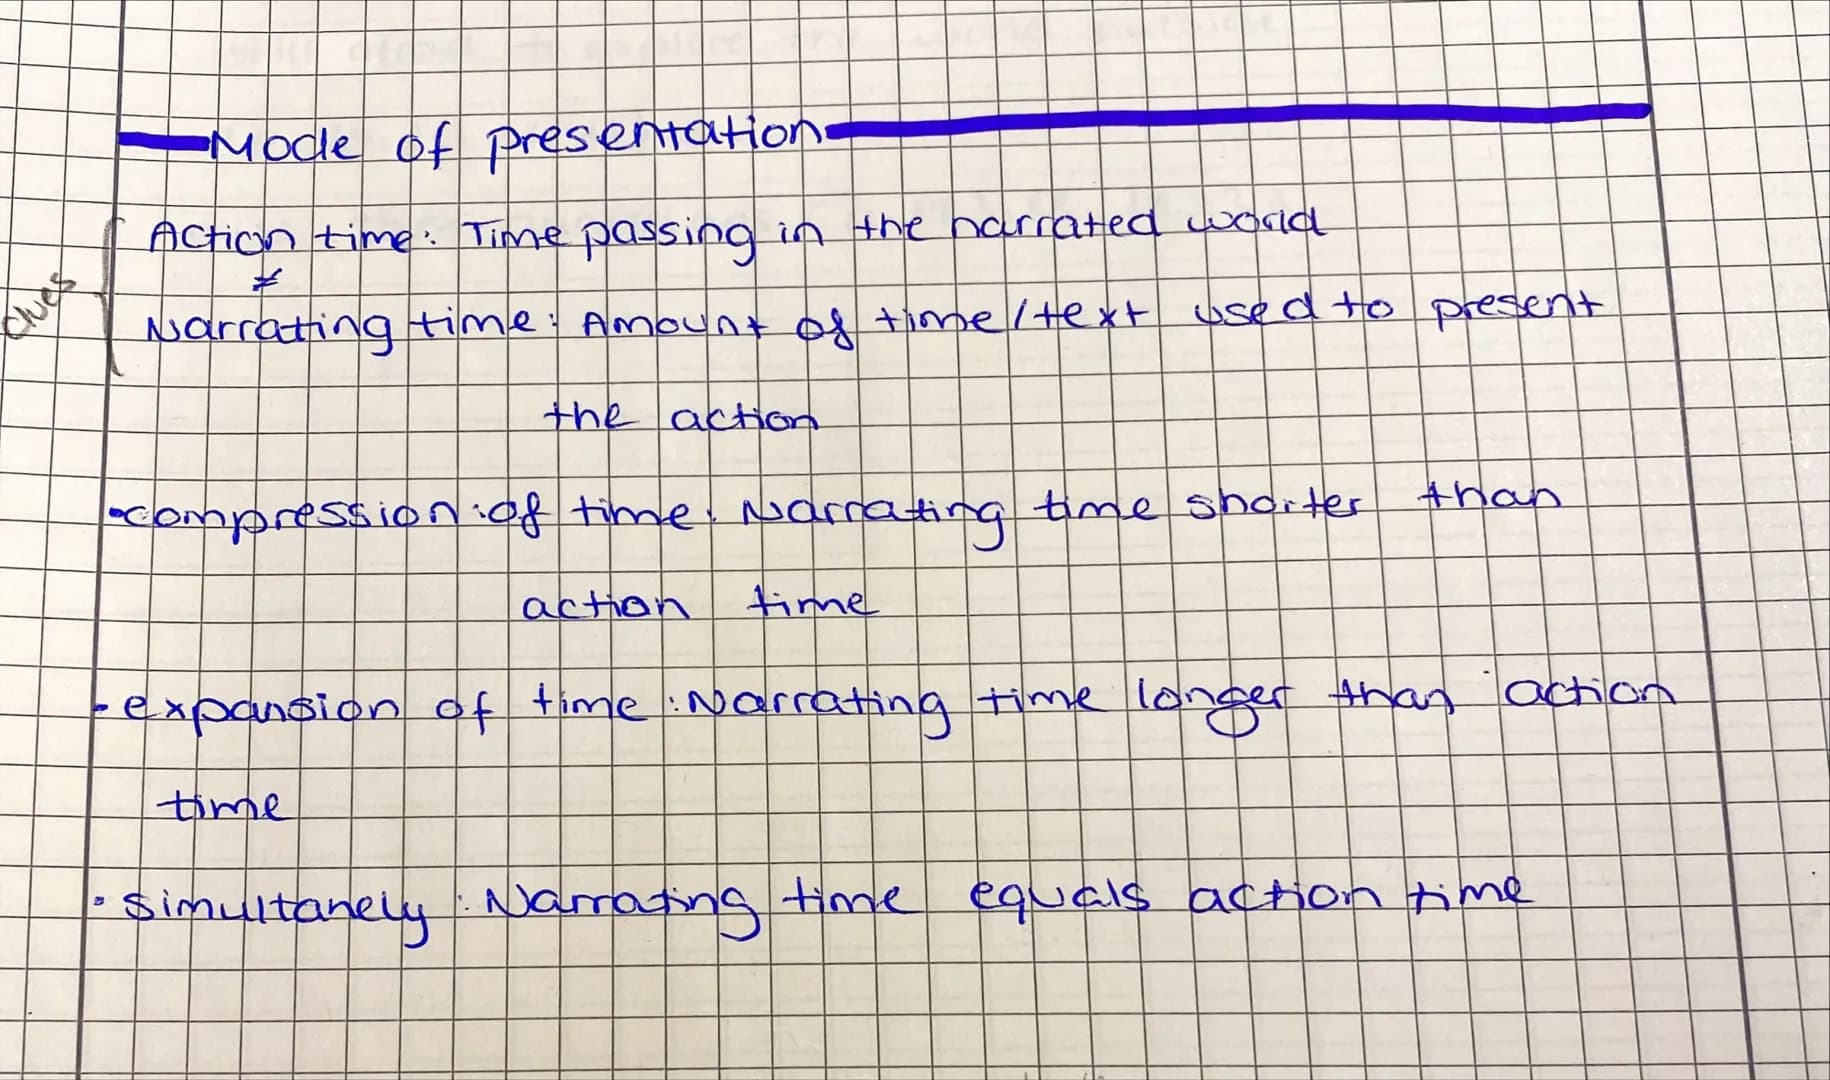 Mode of presentation
Action time: Time passing in the narrated world
≠
Clues
Narrating time: Amount of time/text used to present
the action
-compression of time: Narrating time shorter than
action time
- expansion of time: Narrating time longer than action
time
• simultanely: Narrating time equals action time